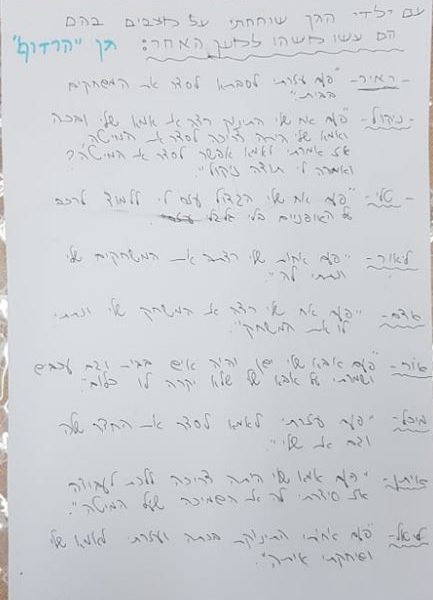 עם ילדי הגן שוחחתי על מצבים בהם
הם עשו משהו למען האחר: גן "הרדוף"
- מאיר - "פעם עזרתי לסבתא לסדר את המשחקים
בבית".
- ניקול - "פעם אח שלי התינוק רצה את אמא שלי ובכה
ואמא שלי היתה צריכה לסדר את המיטה,
אז אמרתי לאמא אפשר לסדר את המיטה?
ואמרה לי תודה ניקול".
- טלי - "פעם אח שלי הגדול עזר לי ללמוד לרכב
על האופניים בלי גלגלי עזר".
ליאור - "פעם אחות שלי רצתה את המשחקים שלי
ונתתי לה".
אדם - "פעם אח שלי רצה את המשחק שלי ונתתי
לו את המשחק".
אור - "פעם אבא שלי ישן והיה איש בבית וגם עכבים
ושמרתי על אבא שלי שלא יקרה לו כלום".
מיכל - "פעם עזרתי לאמא לסדר את החדר שלה
וגם את שלי".
איתן - "פעם אמא שלי היתה צריכה ללכת לעבודה
אז סידרתי לה את השמיכה שעל המיטה".
ליאל - "פעם אחותי התינוקת בכתה ועזרתי לאמא שלי
ושיחקתי איתה".